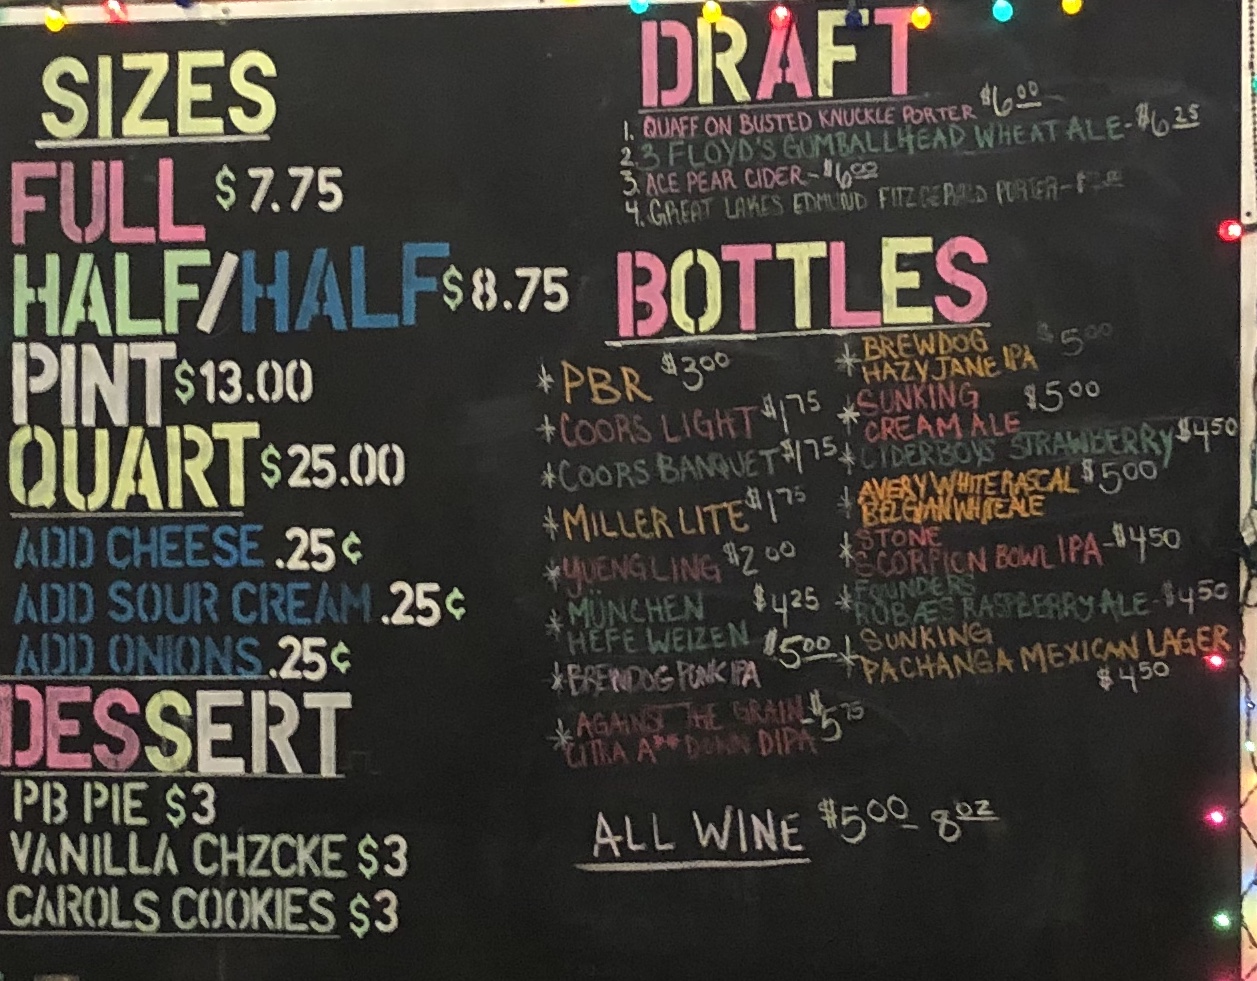 SIZES
FULL $7.75
HALF/HALF $8.75
PINT $13.00
QUART $25.00
ADD CHEESE .25¢
ADD SOUR CREAM .25¢
ADD ONIONS .25¢
DESSERT
PB PIE $3
VANILLA CHZCKE $3
CAROLS COOKIES $3
DRAFT
1. QUAFF ON BUSTED KNUCKLE PORTER $6.00
2. 3 FLOYD'S GUMBALLHEAD WHEAT ALE-$6.25
3. ACE PEAR CIDER-$6.00
4. GREAT LAKES EDMUND FITZGERALD PORTER-
BOTTLES
*PBR $3.00
*COORS LIGHT $1.75
*COORS BANQUET $1.75
*MILLER LITE $1.75
*YUENGLING $2.00
*MÜNCHEN $4.25
HEFE WEIZEN
*BREWDOG PUNK IPA $5.00
*AGAINST THE GRAIN-$5.75
CITRA A** DOWN DIPA
*BREWDOG $5.00
HAZY JANE IPA
*SUNKING $5.00
CREAM ALE
*CYDERBOYS STRAWBERRY $4.50
*AVERY WHITE RASCAL $5.00
BELGIAN WHITE ALE
*STONE
SCORPION BOWL IPA-$4.50
*FOUNDERS
RUBÆS RASPBERRY ALE-$4.50
*SUNKING
PACHANGA MEXICAN LAGER
$4.50
ALL WINE $5.00 8oz